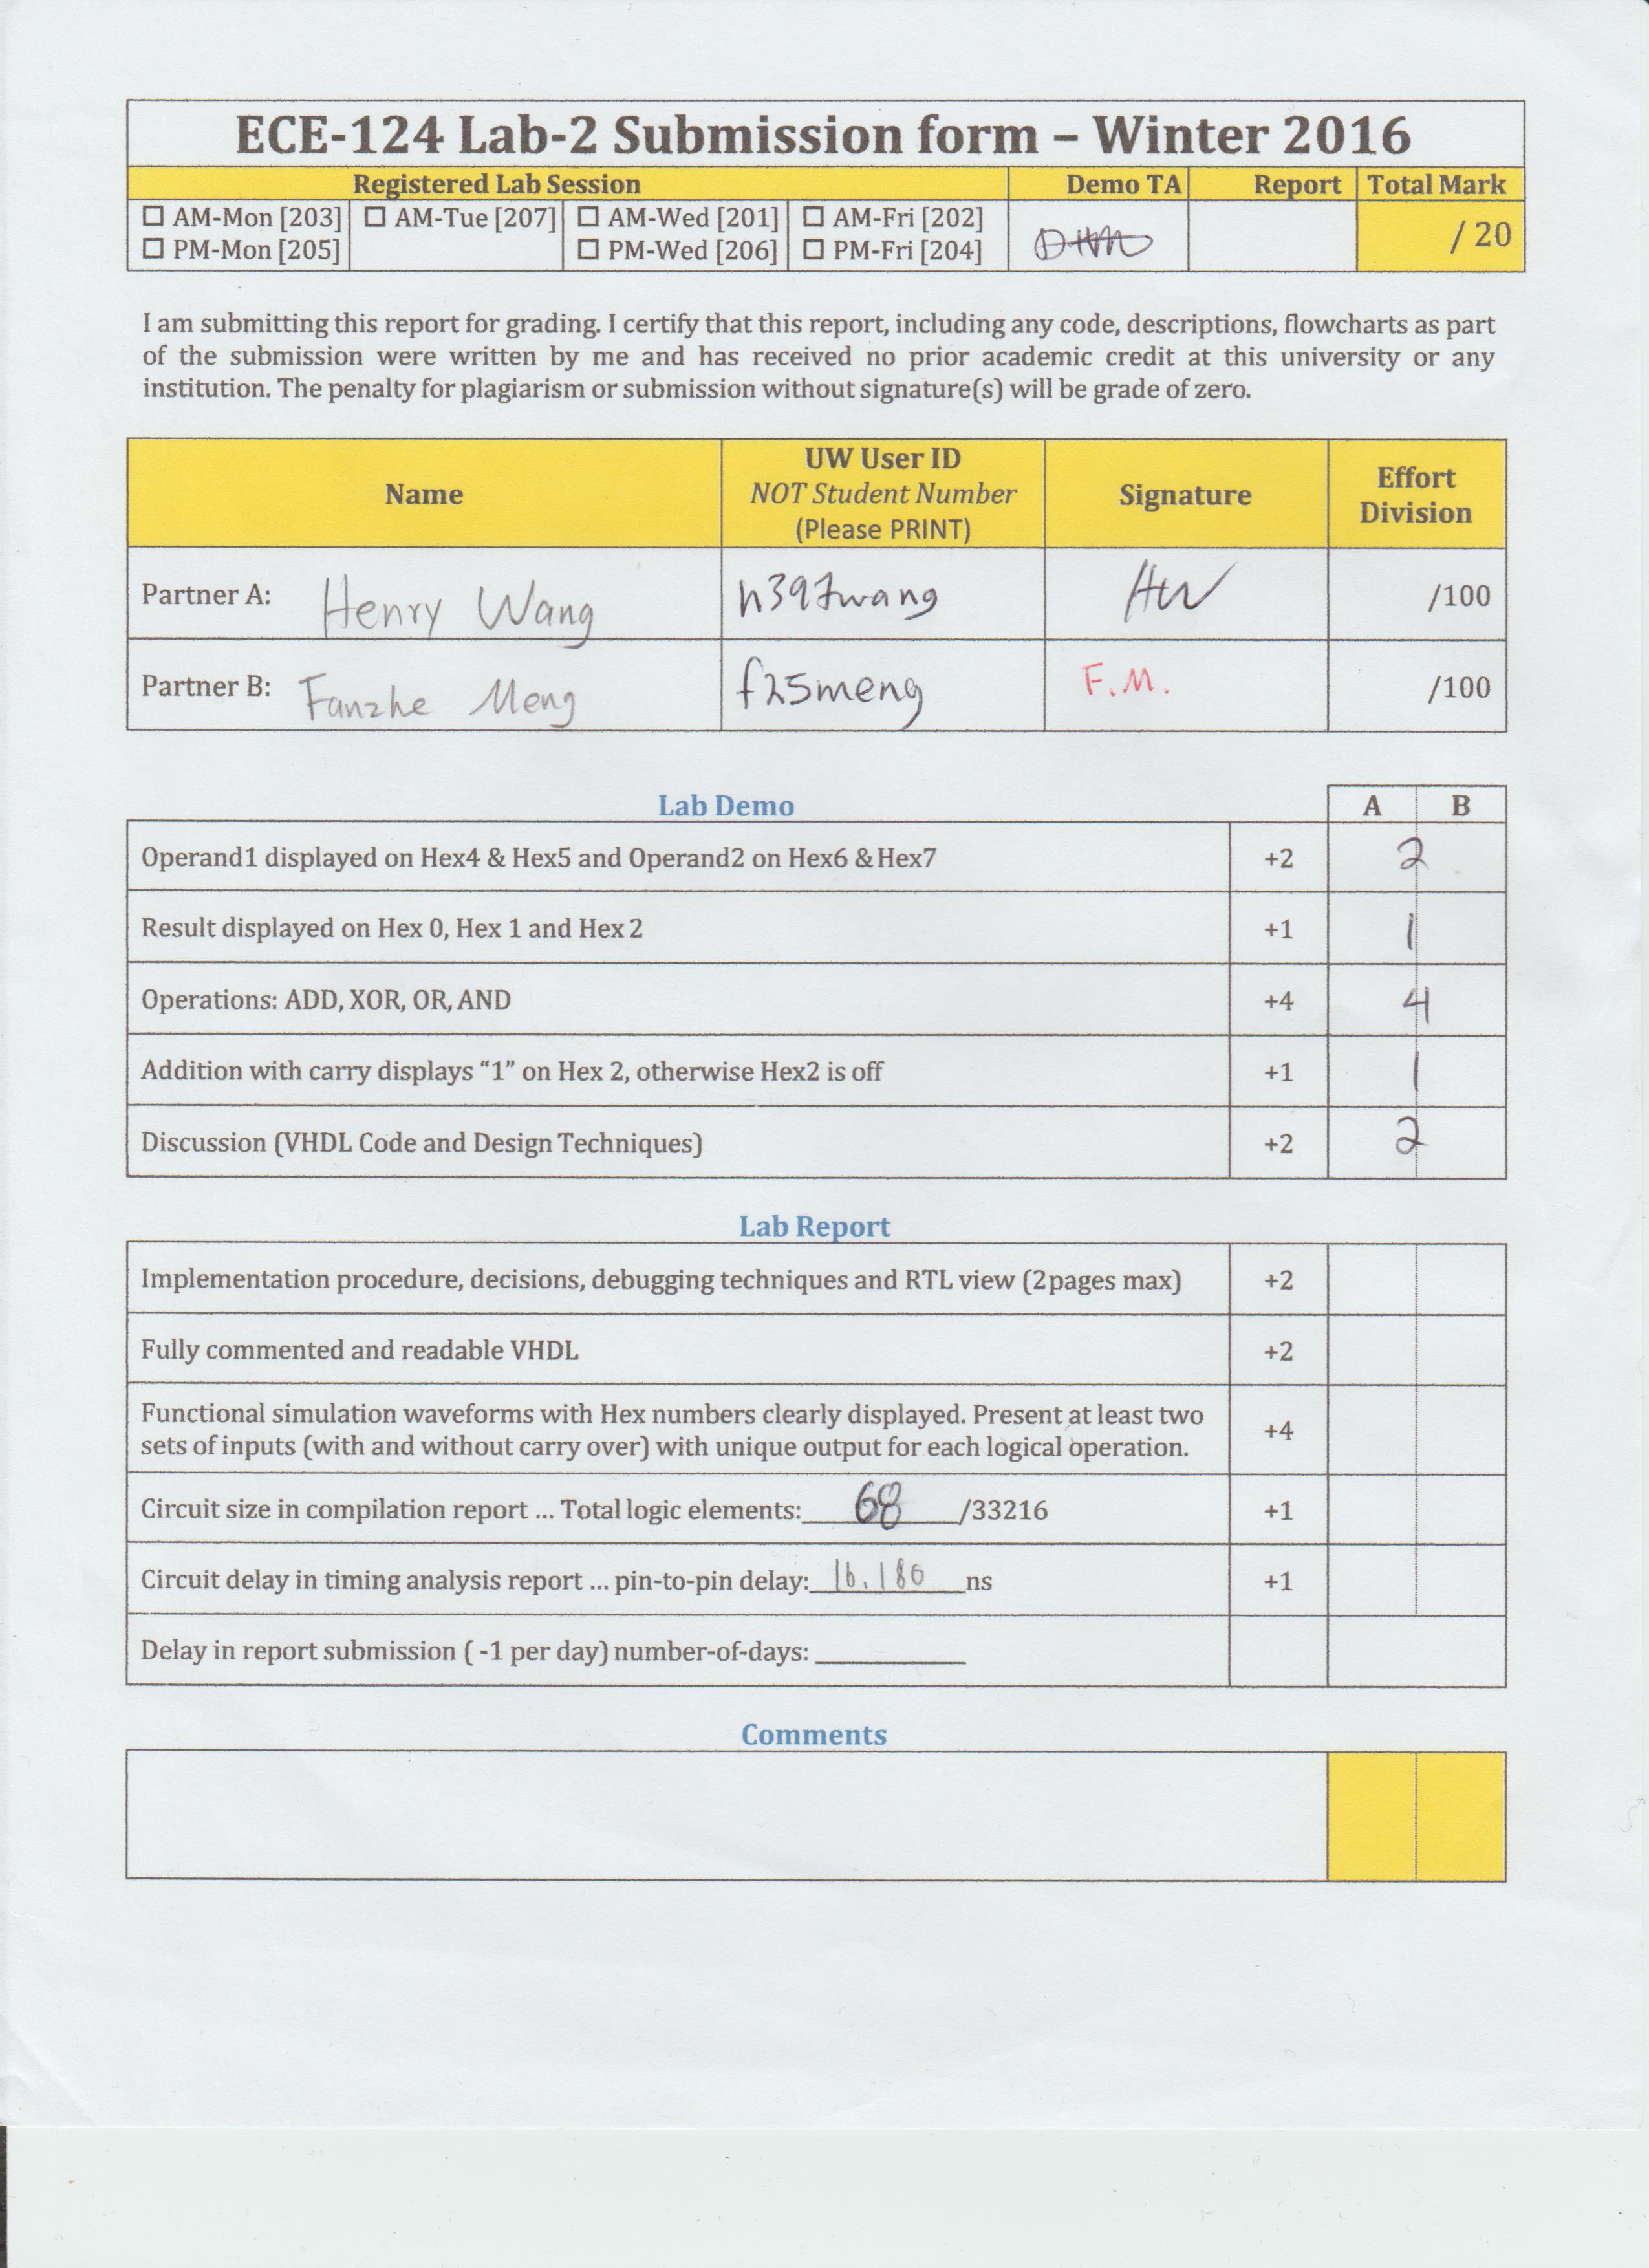 ECE-124 Lab-2 Submission form – Winter 2016
Registered Lab Session Demo TA Report Total Mark
☐ AM-Mon [203] ☐ AM-Tue [207] ☐ AM-Wed [201] ☐ AM-Fri [202]
☐ PM-Mon [205] ☐ PM-Wed [206] ☐ PM-Fri [204] / 20
I am submitting this report for grading. I certify that this report, including any code, descriptions, flowcharts as part
of the submission were written by me and has received no prior academic credit at this university or any
institution. The penalty for plagiarism or submission without signature(s) will be grade of zero.
Name
UW User ID
NOT Student Number
(Please PRINT)
Signature
Effort
Division
Partner A: Henry Wang h397wang HW /100
Partner B: Fanzhe Meng f25meng F.M. /100
Lab Demo A B
Operand1 displayed on Hex4 & Hex5 and Operand2 on Hex6 &Hex7 +2 2
Result displayed on Hex 0, Hex 1 and Hex 2 +1 1
Operations: ADD, XOR, OR, AND +4 4
Addition with carry displays “1” on Hex 2, otherwise Hex2 is off +1 1
Discussion (VHDL Code and Design Techniques) +2 2
Lab Report
Implementation procedure, decisions, debugging techniques and RTL view (2pages max) +2
Fully commented and readable VHDL +2
Functional simulation waveforms with Hex numbers clearly displayed. Present at least two
sets of inputs (with and without carry over) with unique output for each logical operation. +4
Circuit size in compilation report ... Total logic elements: 68 /33216 +1
Circuit delay in timing analysis report ... pin-to-pin delay: 16.180 ns +1
Delay in report submission ( -1 per day) number-of-days: __________
Comments